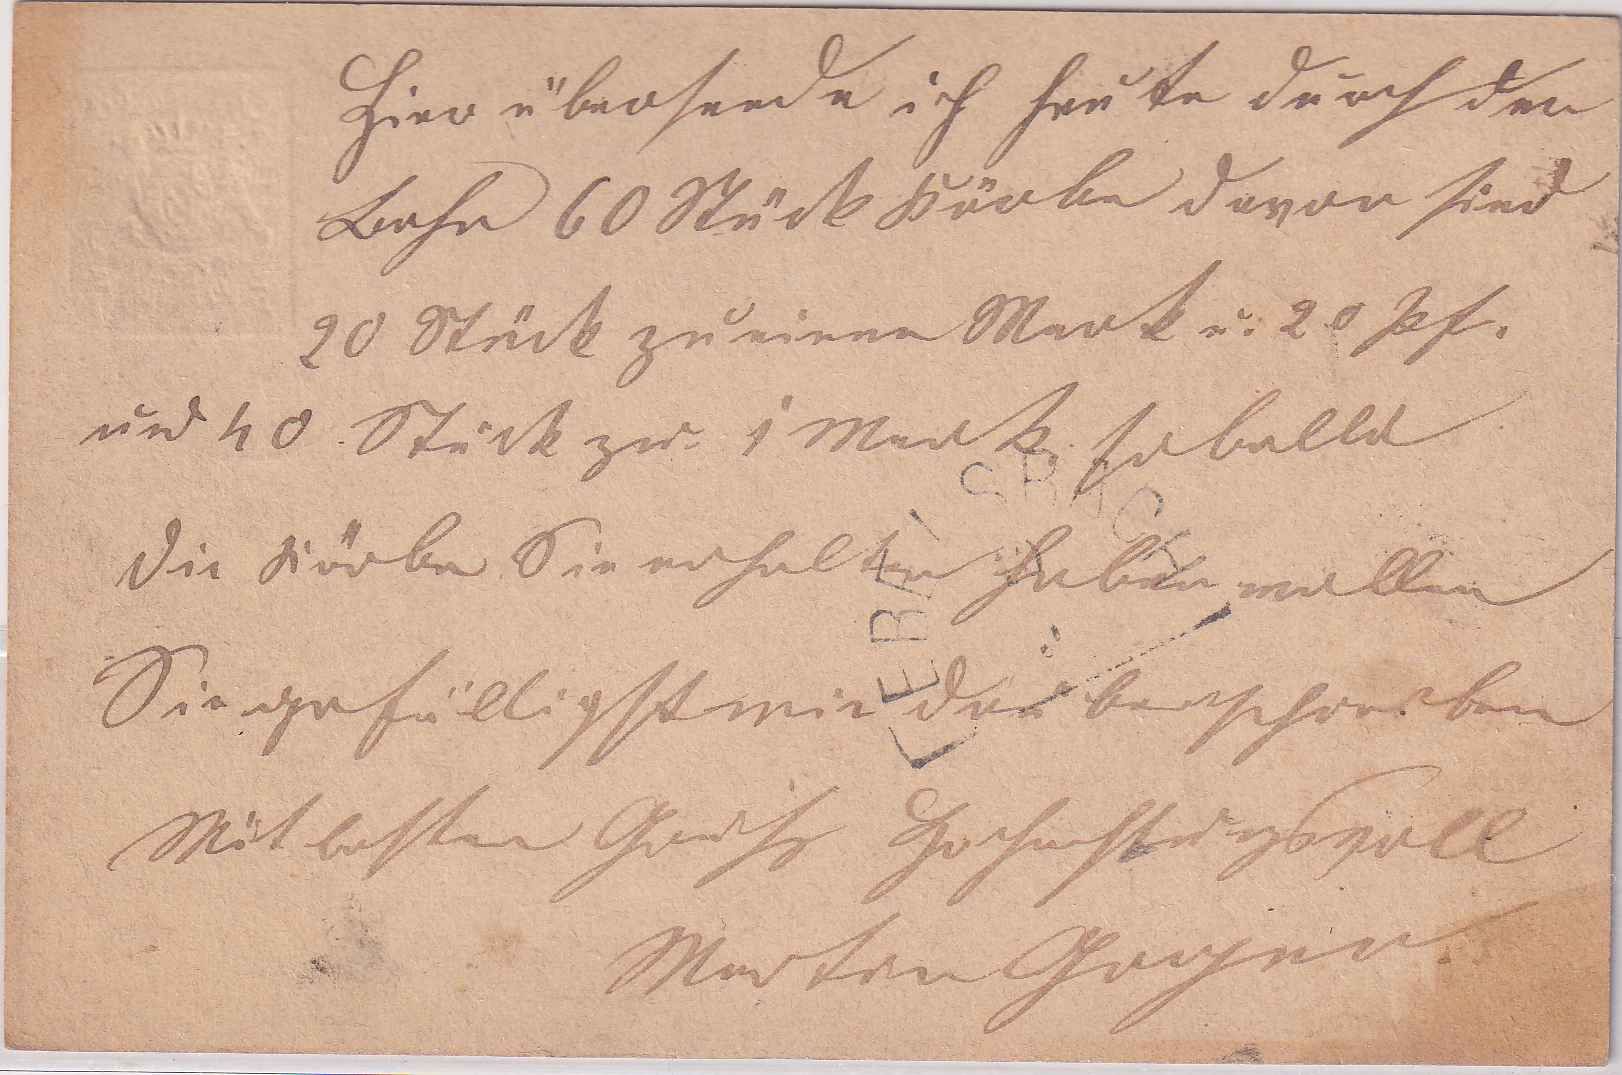 Hier übersende ich heute durch den
Bahn 60 Stück Körbe davon sind
20 Stück zu einen Mark u. 20 Pf.
und 40 Stück zu 1 Mark. so balld
die Körbe Sie erhalten haben wollen
Sie gefälligst mir darüber schreiben
Mit besten Gruß Hochachtungsvoll